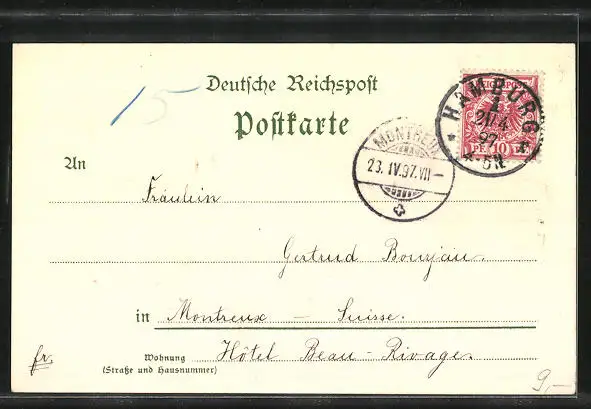 15
Deutsche Reichspost
Postkarte
REICHSPOST
PF. 10 PF.
* HAMBURG *
1
21/4
97
4-5N
MONTREUX
23.IV.97.VII-
An
Fräulein
Gertrud Bonjau.
in Montreux - Suisse.
Wohnung Hôtel Beau-Rivage.
(Straße und Hausnummer)
fr.
9,-